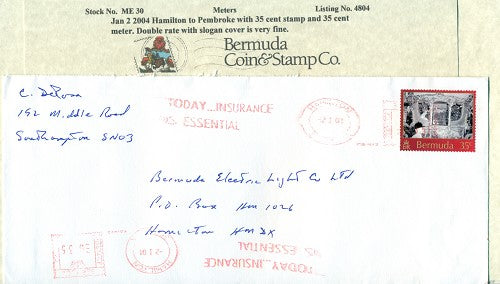 Stock No. ME 30 Meters Listing No. 4804
Jan 2 2004 Hamilton to Pembroke with 35 cent stamp and 35 cent
meter. Double rate with slogan cover is very fine.
Bermuda
Coin & Stamp Co.
C. DeRosa
192 Middle Road
Southampton SN03
TODAY...INSURANCE
IS ESSENTIAL
Bermuda 35c
Bermuda Electric Light Co LTD
P.O. Box HM 1026
Hamilton HM DX
TODAY...INSURANCE
IS ESSENTIAL